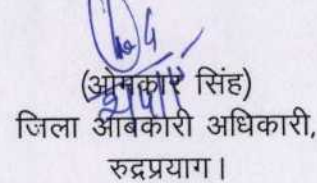 (ओमकार सिंह)
जिला आबकारी अधिकारी,
रुद्रप्रयाग।